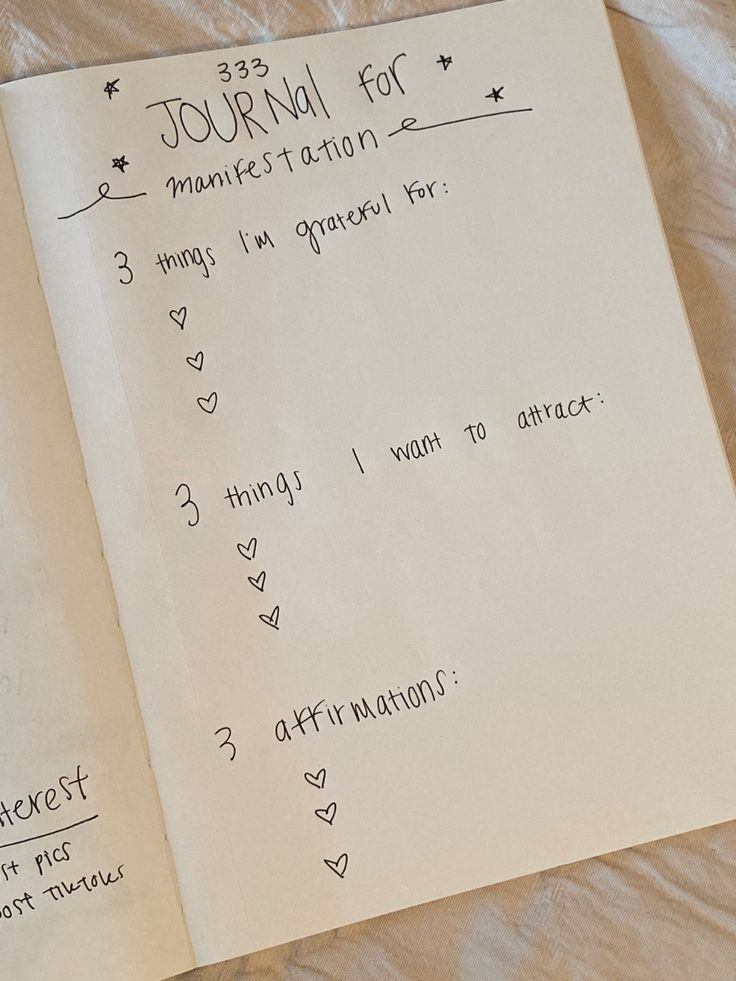 333
JOURNal for
manifestation
3 things I'm grateful for:
3 things I want to attract:
3 affirmations:
pics
Tiktoks